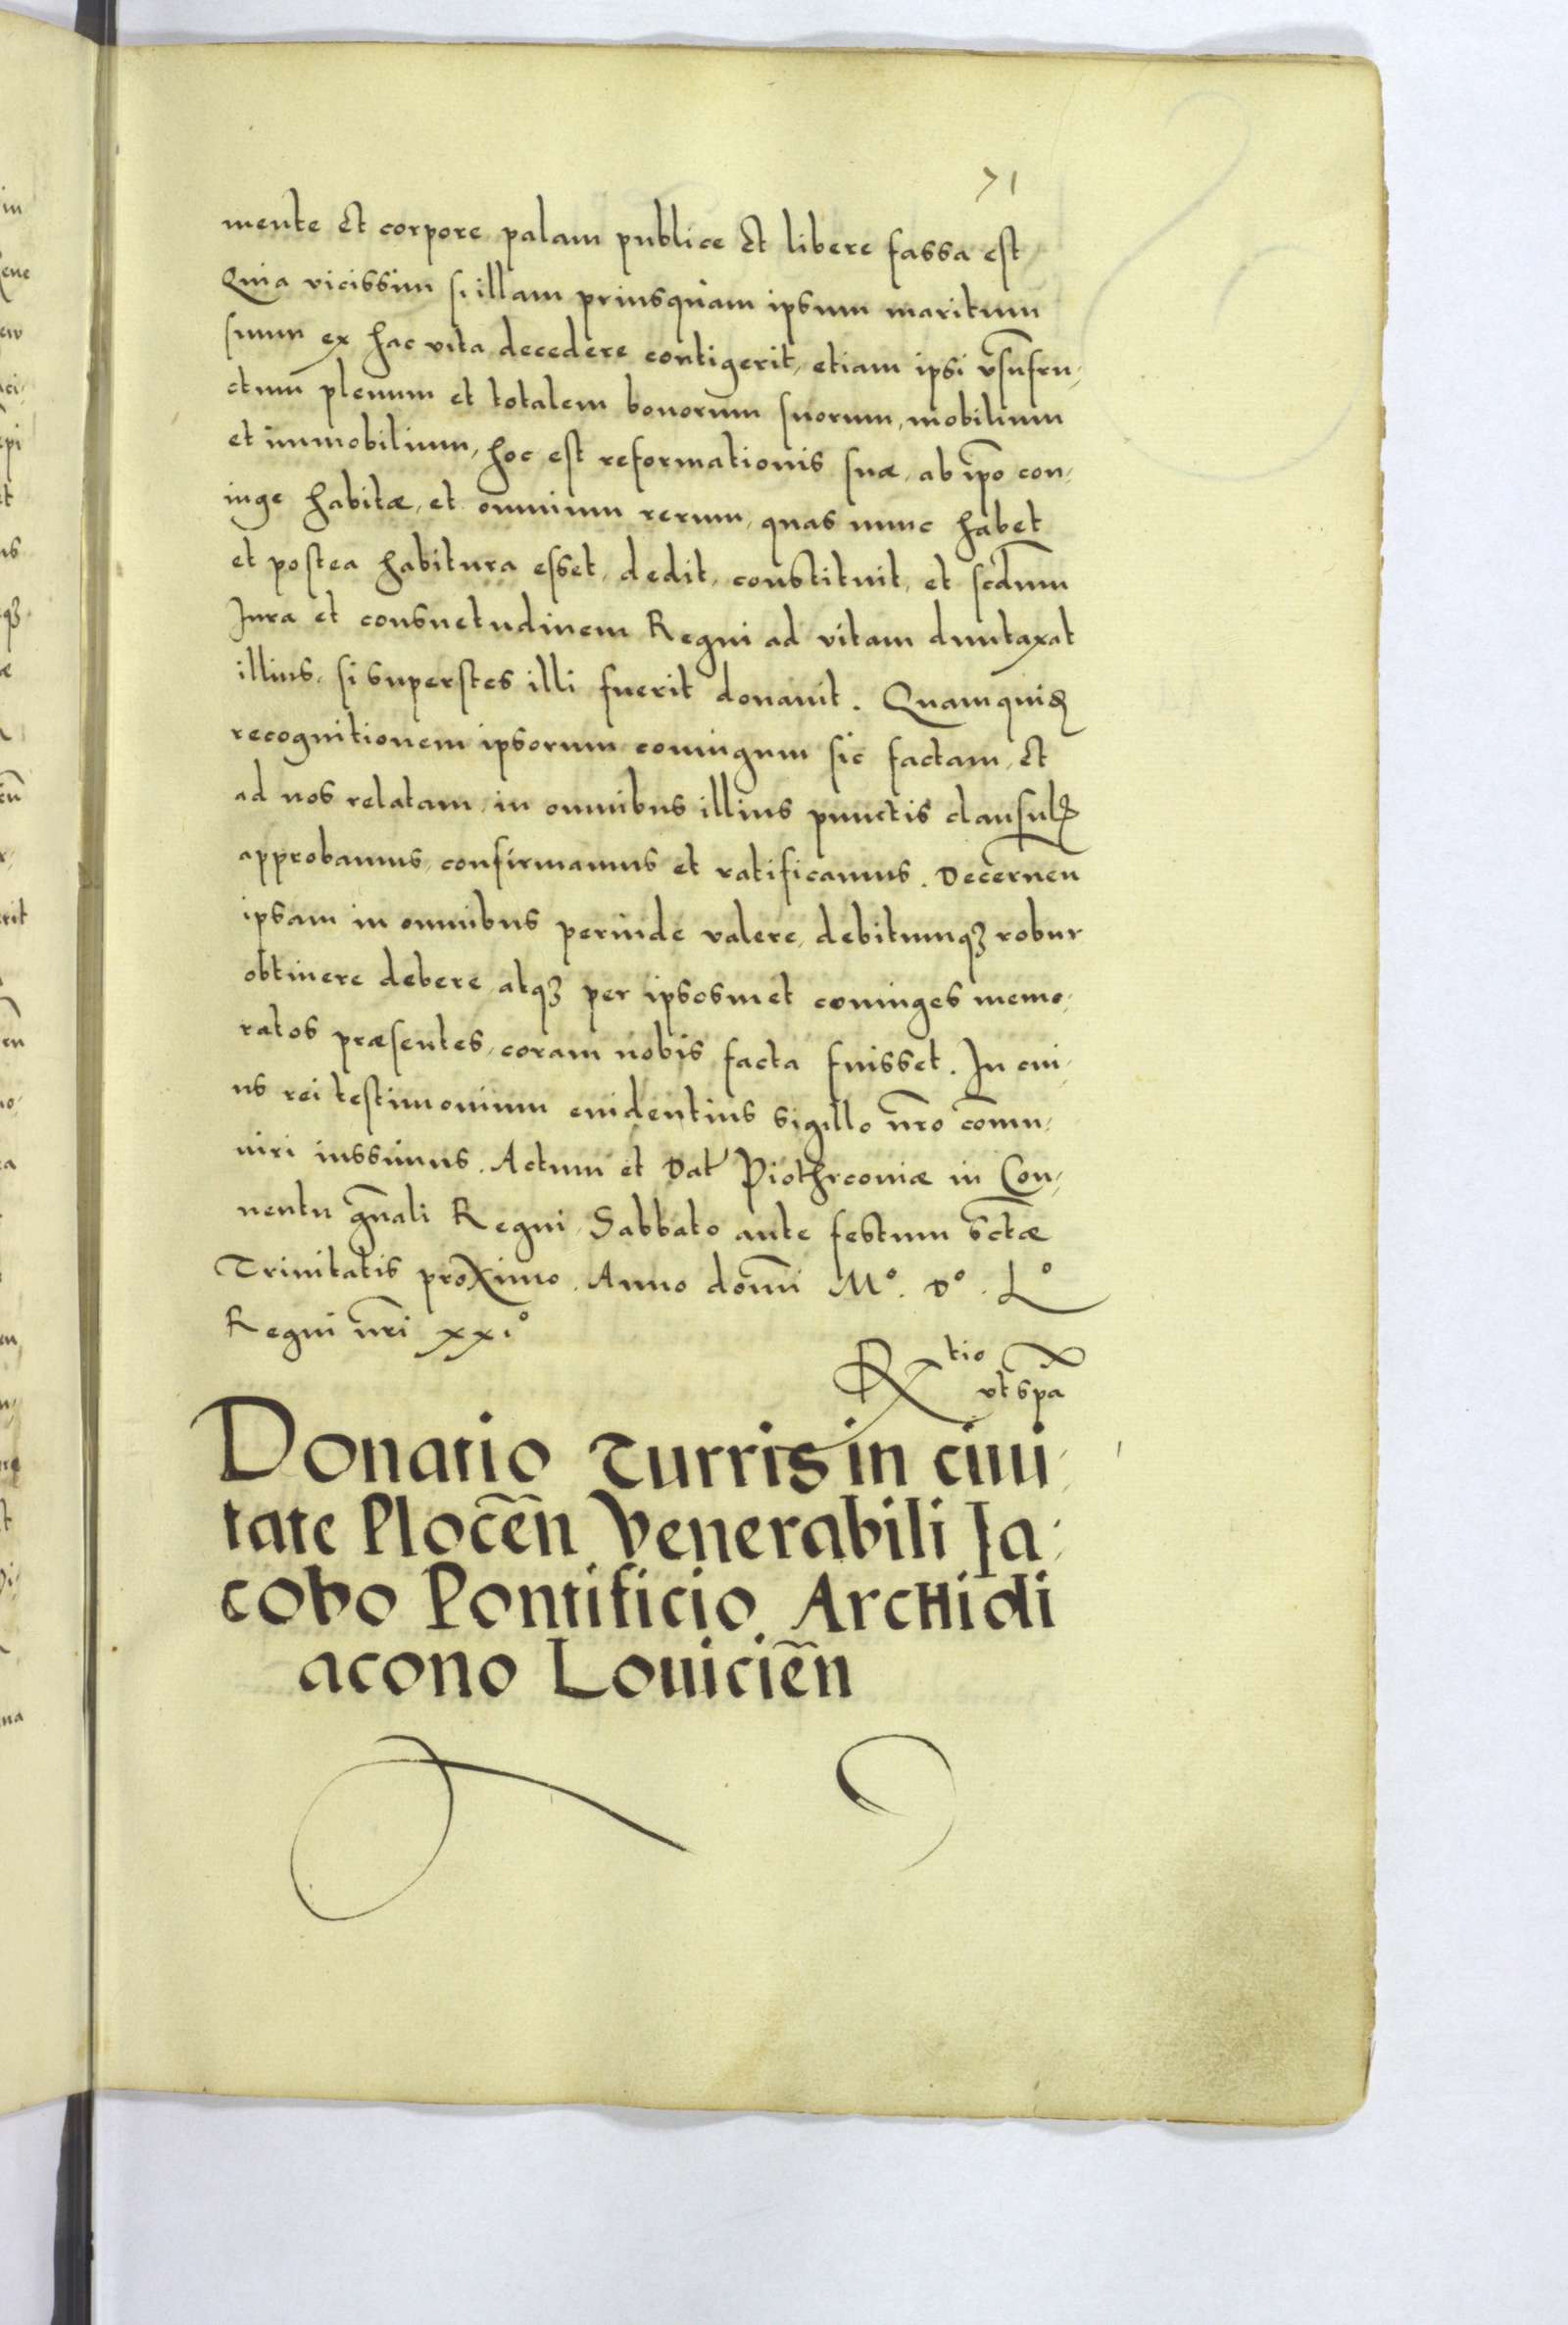 71
mente et corpore palam publice et libere fassa est
Quia vicissim si illam priusquam ipsum maritum
suum ex hac vita decedere contigerit, etiam ipsi vsũfru,
ctum plenum et totalem bonorum suorum, mobilium
et immobilium, hoc est reformationis suæ, ab ip̃o con,
iuge habitæ, et omnium rerum, quas nunc habet
et postea habitura esset, dedit, constituit, et scdum̃
Jura et consuetudinem Regni ad vitam duntaxat
illius, si superstes illi fuerit donauit. Quamquidꝫ
recognitionem ipsorum coniugum sic factam, et
ad nos relatam, in omnibus illius punctis clausulꝭ
approbamus, confirmamus et ratificamus. Decerneñ
ipsam in omnibus perinde valere, debitumqꝫ robur
obtinere debere, atqꝫ per ipsosmet coniuges memo,
ratos præsentes, coram nobis facta fuisset. In cui,
us rei testimonium euidentius sigillo nr̃o com̃u,
niri iussimus. Actum et Dat Piothrconiæ in Con,
uentu gñali Regni, Sabbato ante festum sctæ
Trinitatis proximo. Anno domi͂ Mº. Dº. Lº
Regni nr̃i xxiº
Rtio
vt spa
Donatio Turris in ciui,
tate Ploceñ Venerabili Ja,
cobo Pontificio Archidi
acono Louicieñ